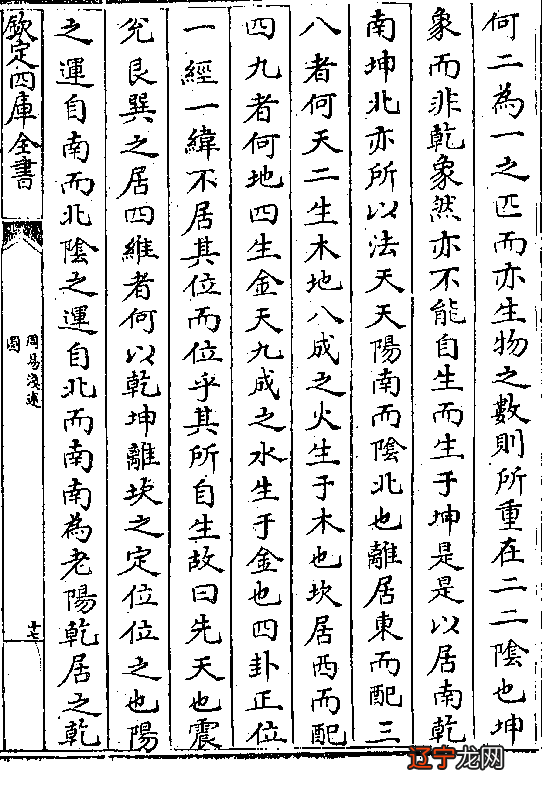 何二為一之匹而亦生物之數則所重在二二隂也坤
象而非乾象然亦不能自生而生于坤是是以居南乾
南坤北亦所以法天天陽南而隂北也離居東而配三
八者何天二生木地八成之火生于木也坎居西而配
四九者何地四生金天九成之水生于金也四卦正位
一經一緯不居其位而位乎其所自生故曰先天也震
兊艮巽之居四維者何以乾坤離坎之定位位之也陽
之運自南而北隂之運自北而南南為老陽乾居之乾
欽定四庫全書
周易淺述
圖
十七
辽宁龙网